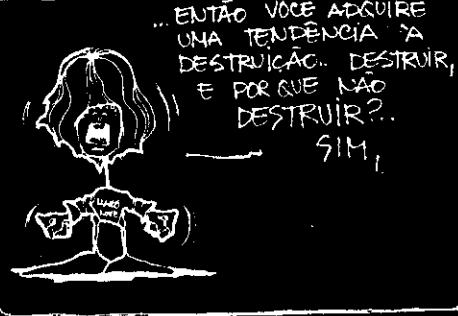 ... ENTÃO VOCE ADQUIRE
UMA TENDÊNCIA A
DESTRUIÇÃO.. DESTRUIR,
E POR QUE NÃO
DESTRUIR?..
SIM,